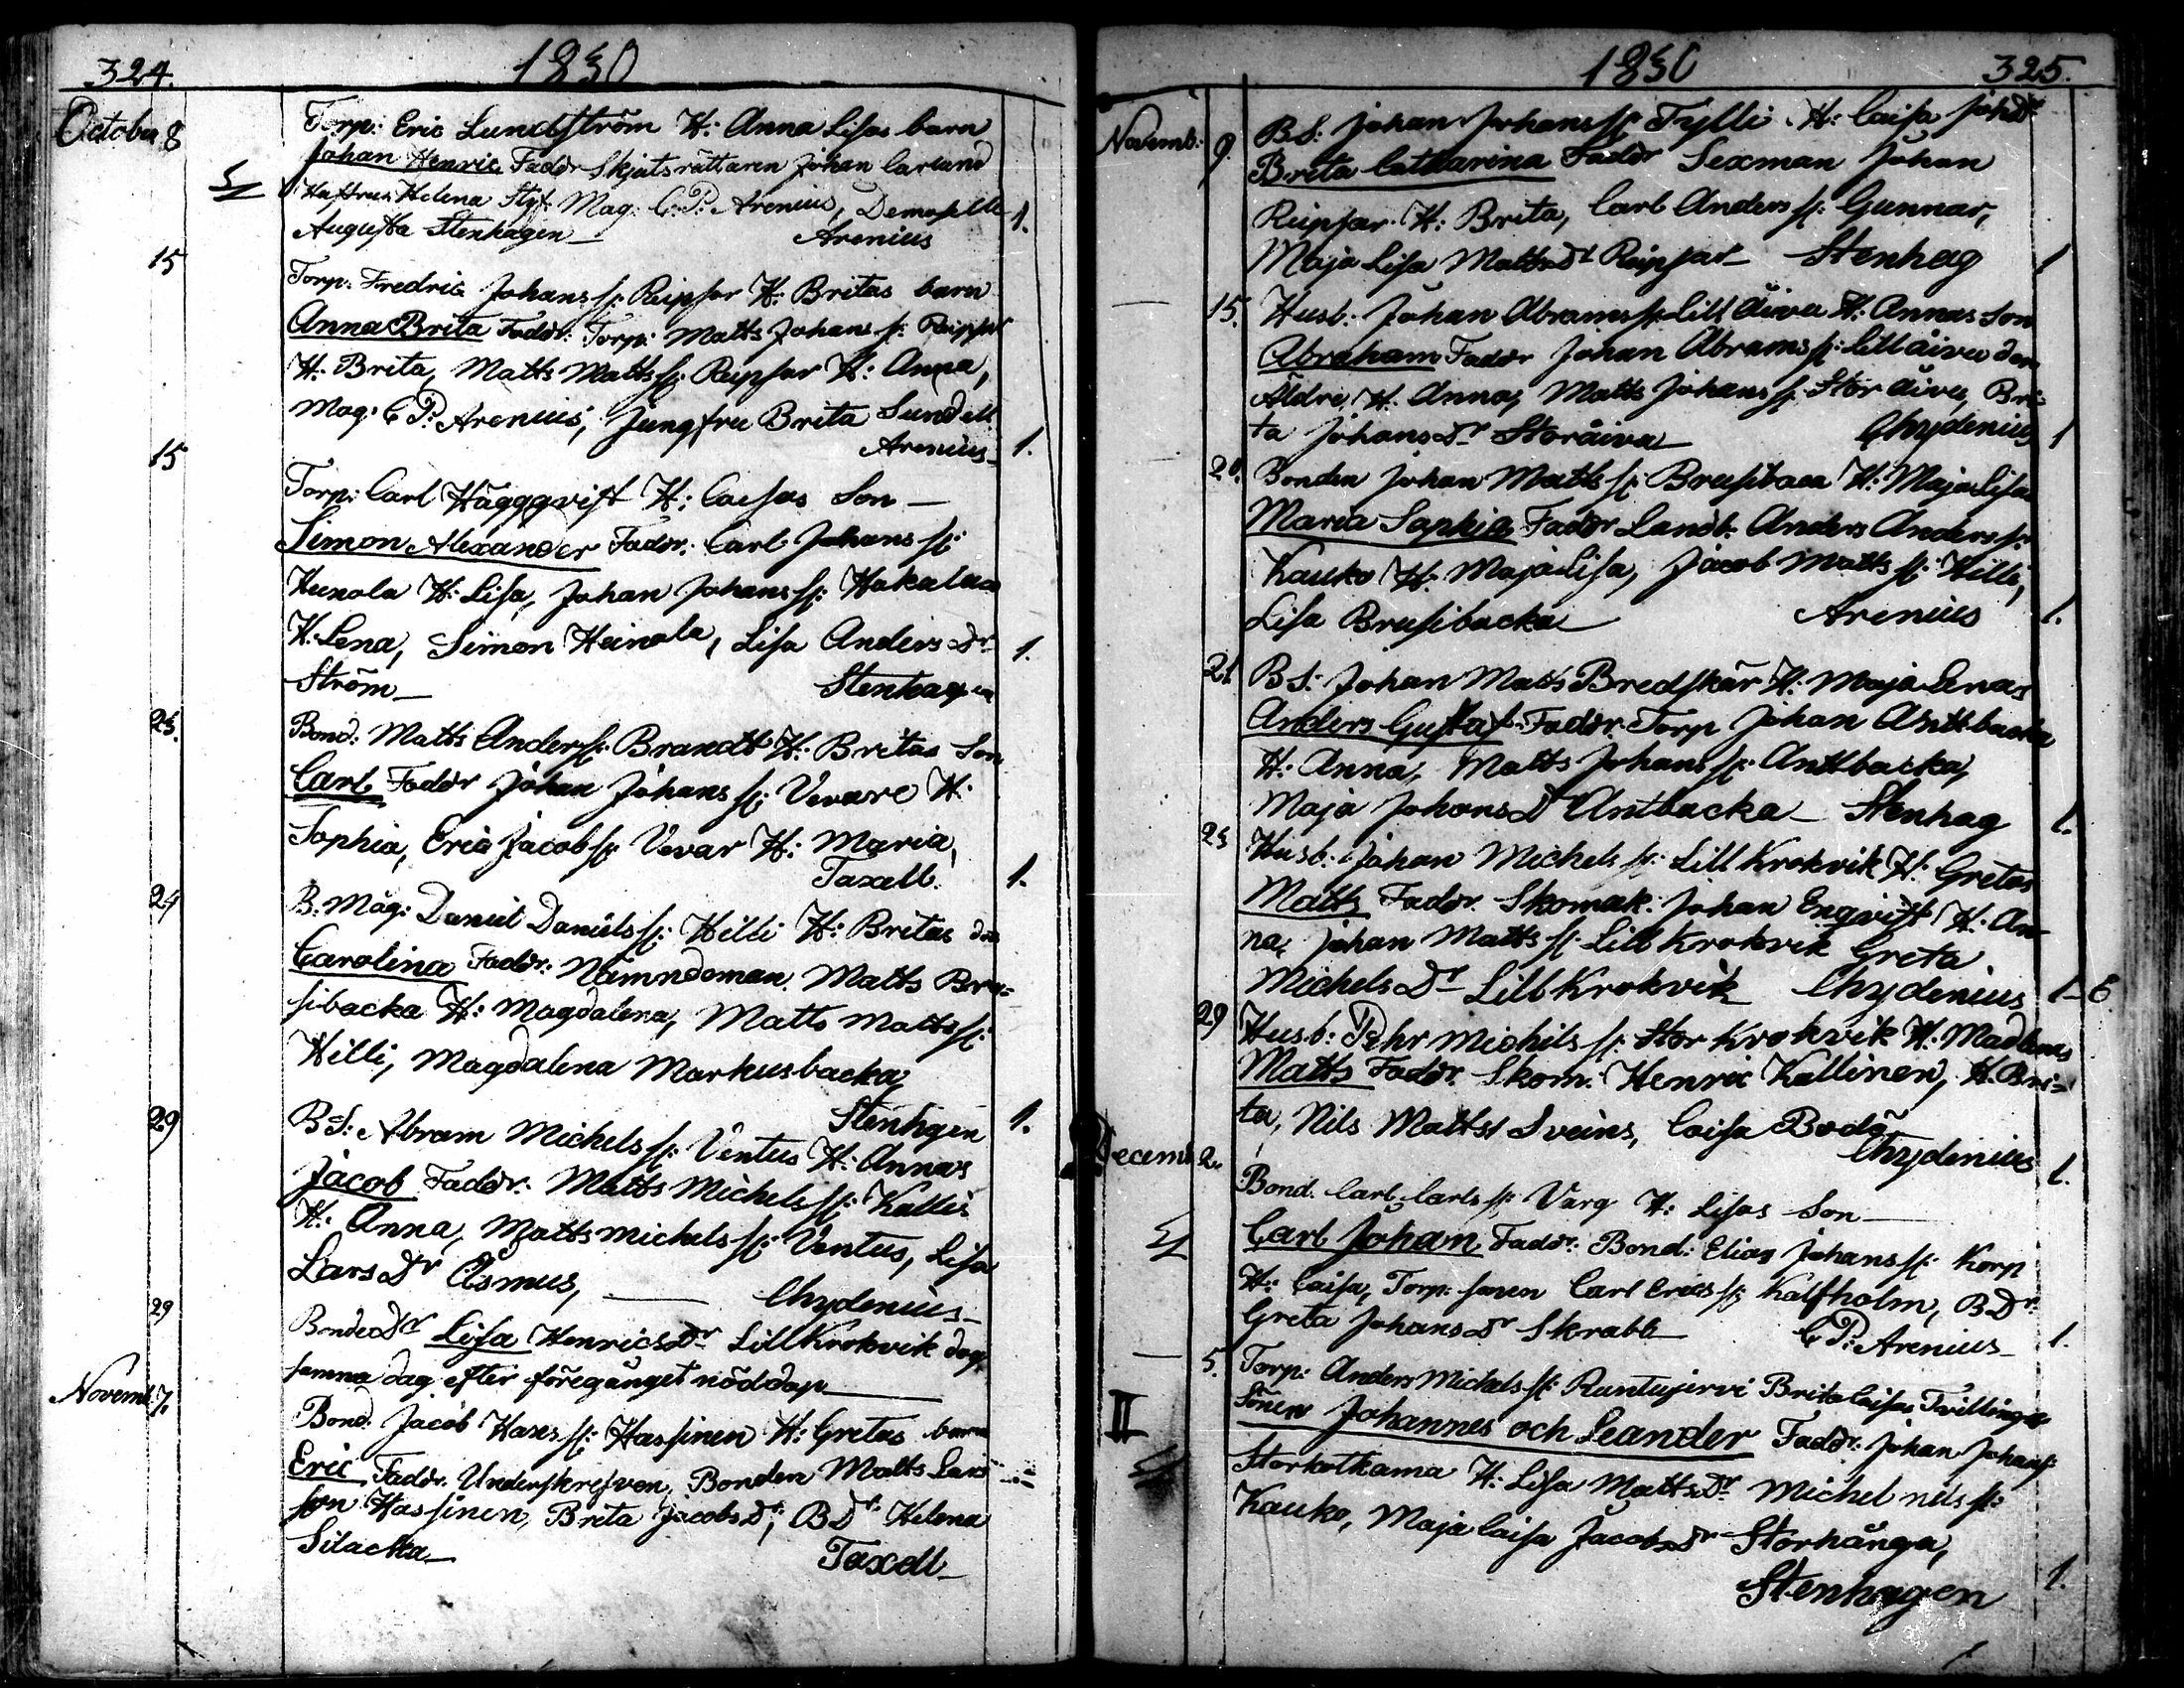 324.
1830
October 8
Torp: Eric Lundström H: Anna Lisas barn
Johan Henric Faddr Skjutsrättaren Johan Carlund
Hustrun Helena Styf. Mag: C. P: Arenius, Demoiselle
Augusta Stenhagen Arenius 1.
15
Torp: Fredric Johans ss: Reipsar H: Britas barn
Anna Brita Faddr: Torp: Matts Johans ss: Reipsar
H: Brita, Matts Matts ss: Reipsar H: Anna,
Mag: C P: Arenius, Jungfru Brita Sundell
Arenius 1.
15
Torp: Carl Häggqvist H: Caisas Son
Simon Alexander Faddr: Carl Johans ss:
Heinola H: Lisa, Johan Johans ss: Hakalua
H: Lena, Simon Heinola, Lisa Anders Dr 1.
Ström Stenhagen
23.
Bond: Matts Anders ss: Brandt H: Britas Son
Carl Faddr Johan Johans ss: Vevare H:
Sophia, Eric Jacob ss: Vevar H: Maria,
Taxell. 1.
24
B. Måg: Daniel Daniels ss: Hilli H: Britas
Carolina Faddr: Nämndeman Matts Bru=
sibacka H: Magdalena, Matts Matts ss:
Hilli, Magdalena Markusbacka
Stenhgen 1.
29
BS: Abram Michels ss: Ventus H: Annas
Jacob Faddr: Matts Michels ss: Kallis
H: Anna, Matts Michels ss: Ventus, Lisa
Lars Dr Åsmus, Chydenius
29
BondeDr Lisa HenricsDr Lill Krokvik dog
samma dag efter föregånget nöddop
Novemb 7.
Bond: Jacob Hans ss: Hassinen H: Gretas barn
Eric Faddr: Underskrefven, Bonden Matts Lars
son Hassinen, Brita Jacobs Dr, BDr Helena
Silacka Taxell
1830
325.
Novemb: 9.
BS: Johan Johans ss: Tylli H: Caisa
Brita Catharina Faddr Sexman Johan
Reipsar H: Brita, Carl Anders ss: Gunnar,
Maja Lisa MattsDr Reipsar Stenhag 1
15.
Husb: Johan Abrams ss: Lill Åiva H: Annas Son
Abraham Faddr Johan Abrams ss: Lillåiva den
Äldre, H. Anna, Matts Johans ss: Stor åiva, Bri=
ta JohansDr Storåiva Chydenius 1
20.
Bonden Johan Matts ss: Brusibaca H: Maja Lisa
Maria Sophia Faddr Landb: Anders Anders ss:
Kauko H: Maja Lisa, Jacob Matts ss: Hilli,
Lisa Brusibacka Arenius 1.
21
BS: Johan Matts Bredskär H: Maja Lenas
Anders Gustaf Faddr: Torp Johan Anttbacka
H: Anna, Matts Johans ss: Anttbacka,
Maja JohansDr Antbacka Stenhag 1.
23
Husb: Johan Michels ss: Lill Krokvik H: Gretas
Matts Faddr: Skomak: Johan Engvist H: An=
na, Johan Matts ss: Lill Krokvik Greta
MichelsDr Lill Krokvik Chydenius 1 6
29
Husb: Pehr Michils ss: Stor Krokvik H: Madlenas
Matts Faddr: Skom: Henric Kallinen, H. Bri=
ta, Nils Matts Sveins, Caisa Bodö
Chydenius 1.
Decemb 2.
Bond: Carl Carls ss: Varg H: Lisas Son
Carl Johan Faddr: Bond: Elias Johans ss: Korp
H: Caisa, Torp: sonen Carl Erics ss: Kalfholm, BDr:
Greta JohansDr Skrabb C P: Arenius 1.
5.
II
Torp: Anders Michels ss: Rantujervi Brita Caisas Tvillinge
Söner Johannes och Leander Faddr: Johan Johans
Storkotkama H: Lisa MattsDr Michel Nils ss:
Kauko, Maja Caisa JacobsDr Storhånga,
Stenhagen 1.